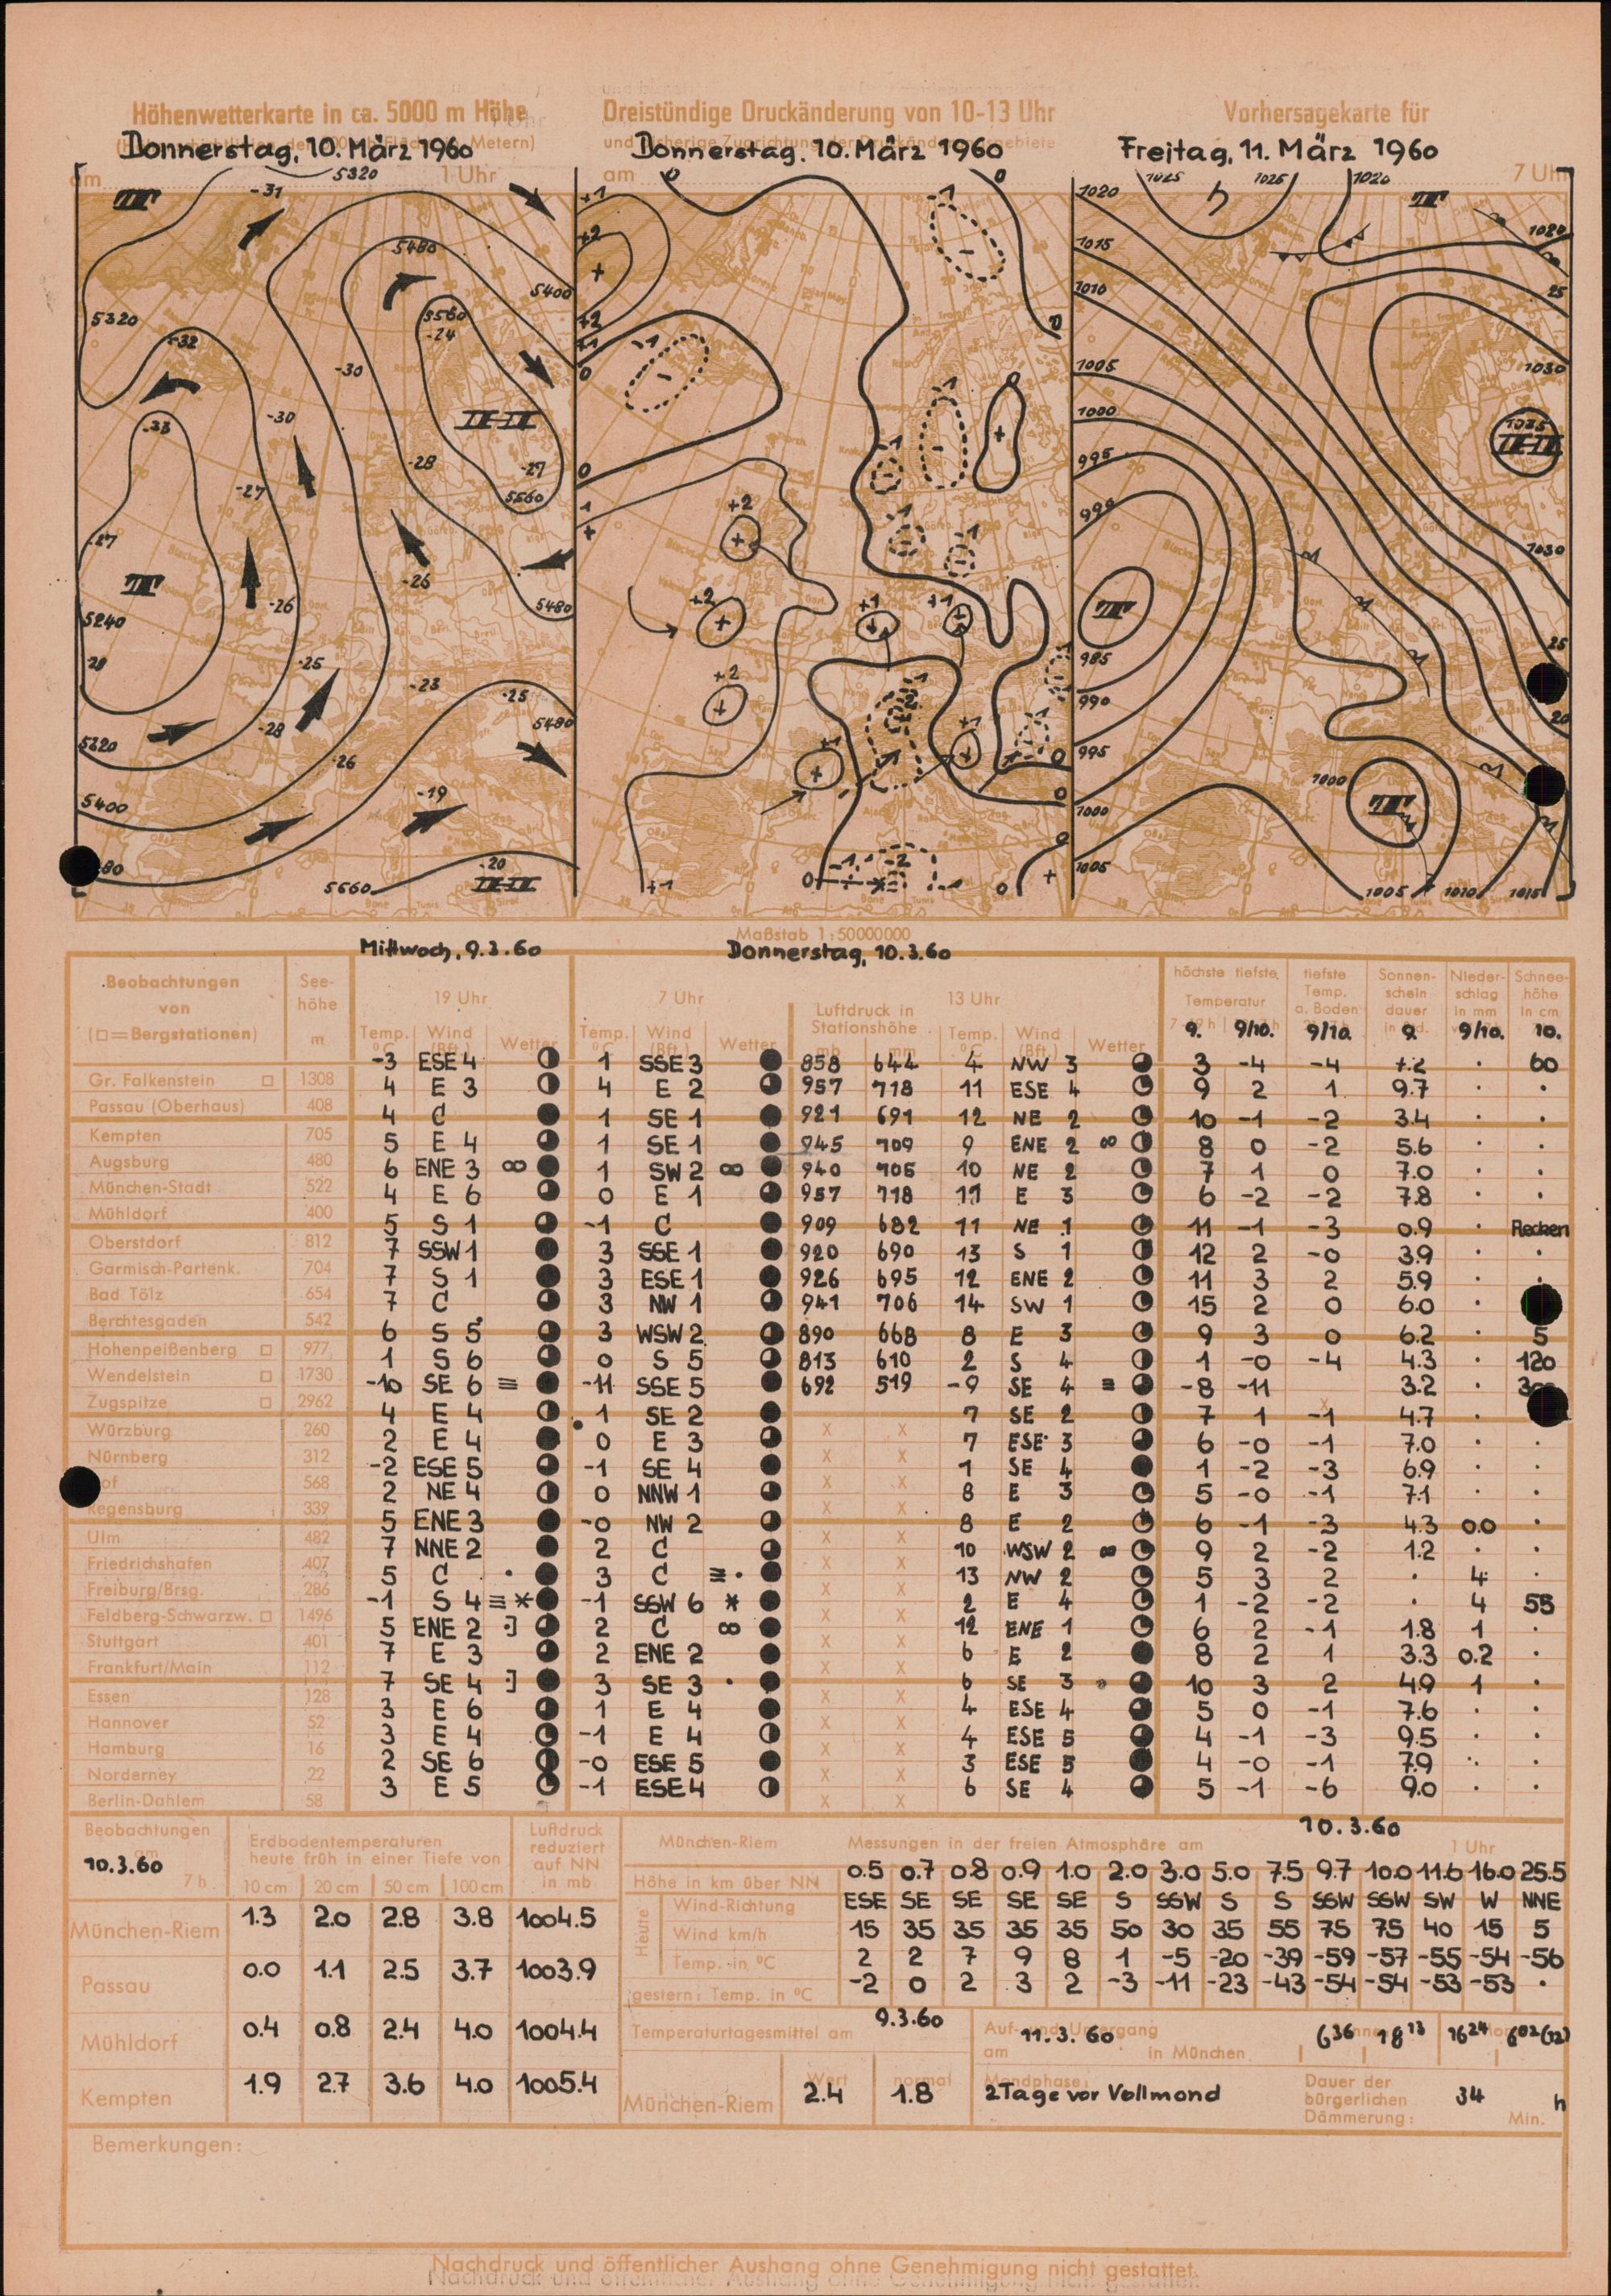 Höhenwetterkarte in ca. 5000 m Höhe
Donnerstag, 10. März 1960
Metern)
am 1 Uhr
Dreistündige Druckänderung von 10-13 Uhr
Donnerstag. 10. März 1960
am
Vorhersagekarte für
Freitag, 11. März 1960
7 Uhr
5320
-31
5480
5400
5320
5560
-24
-32
-30
-33
-30
-28
-27
5560
-27
-26
5480
-26
5240
-25
-23
-25
-28
5480
5320
-26
-19
5400
-20
5560
+1
+2
+2
+1
0
0
1
+
1025
1025
1020
1020
1015
1010
1005
1000
995
990
985
990
995
1000
1005
1020
25
1030
1035
1030
25
20
1000
1005
1010
1015
Maßstab 1:50000000
Mittwoch, 9.3.60 Donnerstag, 10.3.60
Beobachtungen von (□=Bergstationen)
Seehöhe m
19 Uhr
7 Uhr
13 Uhr
Temp. °C Wind (Bft.) Wetter
Temp. °C Wind (Bft.) Wetter
Luftdruck in Stationshöhe mb mm
Temp. °C Wind (Bft.) Wetter
höchste tiefste Temperatur
tiefste Temp. a. Boden
Sonnenscheindauer
Niederschlag in mm
Schneehöhe in cm
9. 9/10. 9/10. 9. 9/10. 10.
Gr. Falkenstein □ 1308 -3 ESE 4 1 SSE 3 858 644 4 NW 3 3 -4 -4 · 60
Passau (Oberhaus) 408 4 E 3 4 E 2 957 718 11 ESE 4 9 2 1 9.7 · ·
Kempten 705 4 C 1 SE 1 921 691 12 NE 2 10 -1 -2 3.4 · ·
Augsburg 480 5 E 4 1 SE 1 945 709 9 ENE 2 ∞ 8 0 -2 5.6 · ·
München-Stadt 522 6 ENE 3 ∞ 1 SW 2 ∞ 940 705 10 NE 2 7 1 0 7.0 · ·
Mühldorf 400 4 E 6 0 E 1 957 718 11 E 3 6 -2 -2 7.8 · ·
Oberstdorf 812 5 S 1 -1 C 909 682 11 NE 1 11 -1 -3 0.9 ·
Garmisch-Partenk. 704 7 SSW 1 3 SSE 1 920 690 13 S 1 12 2 -0 3.9 · ·
Bad Tölz 654 7 S 1 3 ESE 1 926 695 12 ENE 2 11 3 2 5.9 · ·
Berchtesgaden 542 7 C 3 NW 1 941 706 14 SW 1 15 2 0 6.0 ·
Hohenpeißenberg □ 977 6 S 5 3 WSW 2 890 668 8 E 3 9 3 0 6.2 · 5
Wendelstein □ 1730 1 S 6 0 S 5 813 610 2 S 4 1 -0 -4 4.3 · 120
Zugspitze □ 2962 -10 SE 6 ≡ -11 SSE 5 692 519 -9 SE 4 ≡ -8 -11 x 3.2 ·
Würzburg 260 4 E 4 1 SE 2 x x 7 SE 2 7 1 -1 4.7 ·
Nürnberg 312 2 E 4 0 E 3 x x 7 ESE 3 6 -0 -1 7.0 · ·
Hof 568 -2 ESE 5 -1 SE 4 x x 1 SE 4 1 -2 -3 6.9 · ·
Regensburg 339 2 NE 4 0 NNW 1 x x 8 E 3 5 -0 -1 7.1 · ·
Ulm 482 5 ENE 3 -0 NW 2 x x 8 E 2 6 -1 -3 4.3 0.0 ·
Friedrichshafen 407 7 NNE 2 2 C x x 10 WSW 2 ∞ 9 2 -2 1.2 · ·
Freiburg/Brsg. 286 5 C · 3 C ≡· x x 13 NW 2 5 3 2 · 4 ·
Feldberg-Schwarzw. □ 1496 -1 S 4 ≡* -1 SSW 6 * x x 2 E 4 1 -2 -2 · 4 55
Stuttgart 401 5 ENE 2 ·] 2 C ∞ x x 12 ENE 1 6 2 -1 1.8 1 ·
Frankfurt/Main 112 7 E 3 2 ENE 2 x x 6 E 2 8 2 1 3.3 0.2 ·
Essen 128 7 SE 4 ·] 3 SE 3 · x x 6 SE 3 10 3 2 4.9 1 ·
Hannover 52 3 E 6 1 E 4 x x 4 ESE 4 5 0 -1 7.6 · ·
Hamburg 16 3 E 4 -1 E 4 x x 4 ESE 5 4 -1 -3 9.5 · ·
Norderney 22 2 SE 6 -0 ESE 5 x x 3 ESE 5 4 -0 -1 7.9 · ·
Berlin-Dahlem 58 3 E 5 -1 ESE 4 x x 6 SE 4 5 -1 -6 9.0 · ·
Beobachtungen am 10.3.60 7 h
Erdbodentemperaturen heute früh in einer Tiefe von
10 cm 20 cm 50 cm 100 cm
Luftdruck reduziert auf NN in mb
München-Riem 1.3 2.0 2.8 3.8 1004.5
Passau 0.0 1.1 2.5 3.7 1003.9
Mühldorf 0.4 0.8 2.4 4.0 1004.4
Kempten 1.9 2.7 3.6 4.0 1005.4
München-Riem Messungen in der freien Atmosphäre am 10.3.60 1 Uhr
Höhe in km über NN 0.5 0.7 0.8 0.9 1.0 2.0 3.0 5.0 7.5 9.7 10.0 11.6 16.0 25.5
Heute:
Wind-Richtung ESE SE SE SE SE S SSW S S SSW SSW SW W NNE
Wind km/h 15 35 35 35 35 50 30 35 55 75 75 40 15 5
Temp. in °C 2 2 7 9 8 1 -5 -20 -39 -59 -57 -55 -54 -56
gestern: Temp. in °C -2 0 2 3 2 -3 -11 -23 -43 -54 -54 -53 -53 ·
Temperaturtagesmittel am 9.3.60
Wert normal
München-Riem 2.4 1.8
Auf- und Untergang am 11.3.60 in München
6 36 18 13 16 24
Mondphase:
2 Tage vor Vollmond
Dauer der bürgerlichen Dämmerung: 34 Min.
h
Bemerkungen:
Nachdruck und öffentlicher Aushang ohne Genehmigung nicht gestattet.